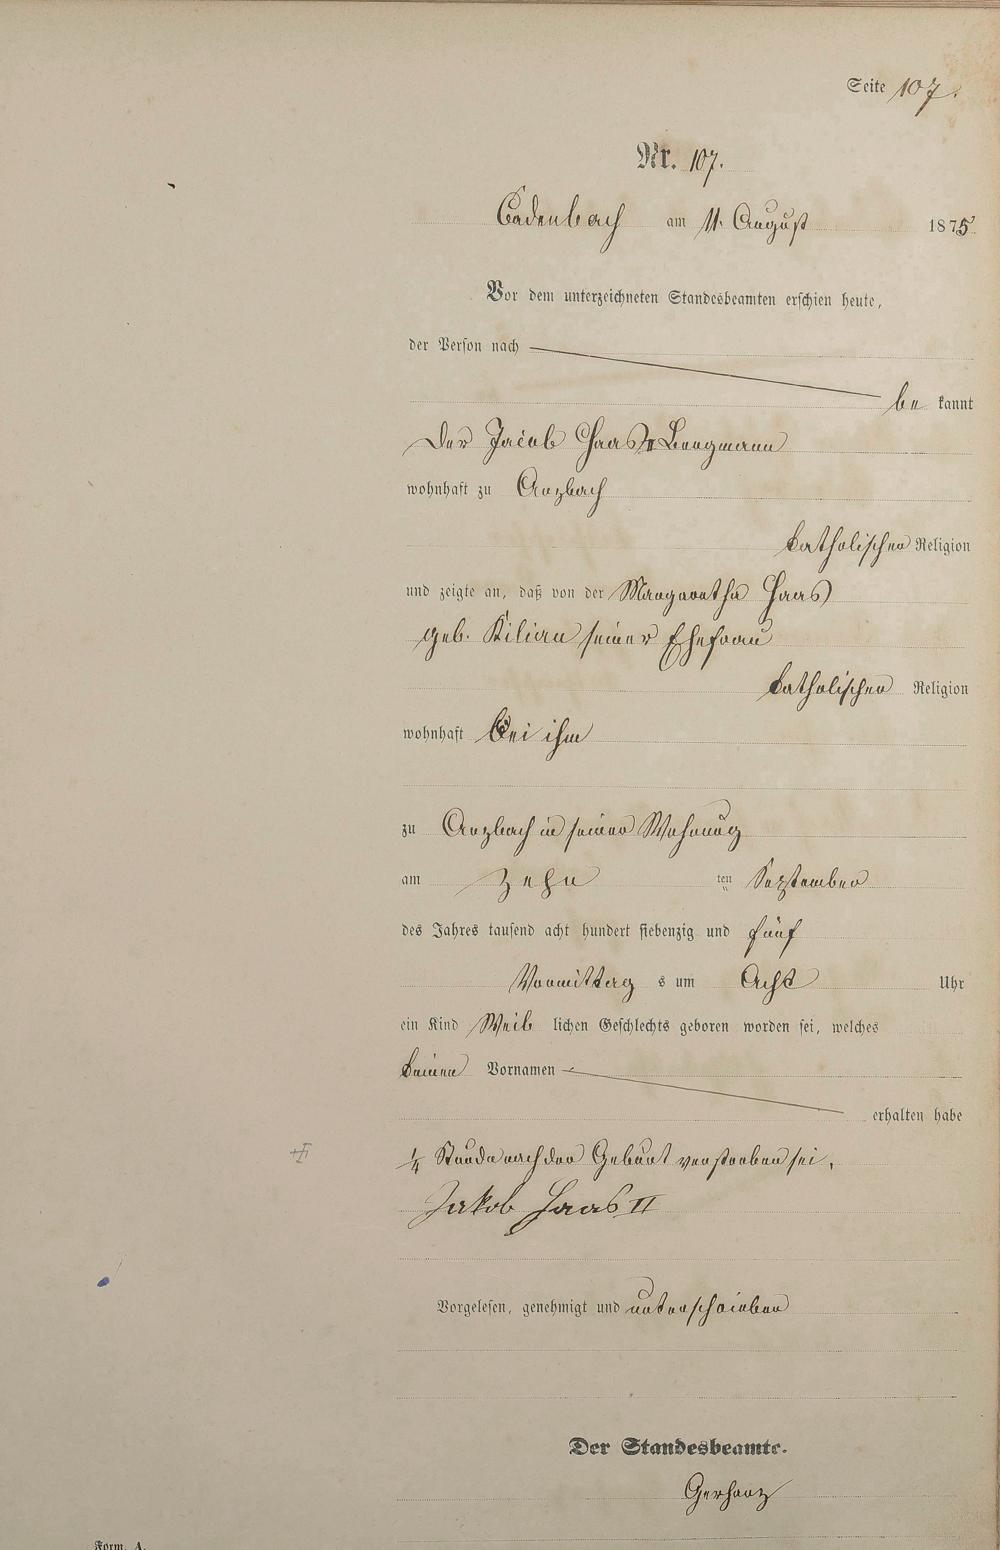 Seite 107.
Nr. 107.
Cadenbach am 11. August 1875
Vor dem unterzeichneten Standesbeamten erschien heute,
der Person nach
be kannt
Der Jacob Haas II Bergmann
wohnhaft zu Arzbach
katholischer Religion
und zeigte an, daß von der Margaretha Haas
geb. Kilian seiner Ehefrau
katholischer Religion
wohnhaft bei ihm
zu Arzbach in seiner Wohnung
am zehn ten September
des Jahres tausend acht hundert siebenzig und fünf
Vormittag s um Acht Uhr
ein Kind Weib lichen Geschlechts geboren worden sei, welches
keinen Vornamen
erhalten habe
1/4 Stunde nach der Geburt verstorben sei.
Jakob Haas II
Vorgelesen, genehmigt und unterschrieben
Der Standesbeamte.
Gerharz
Form. A.